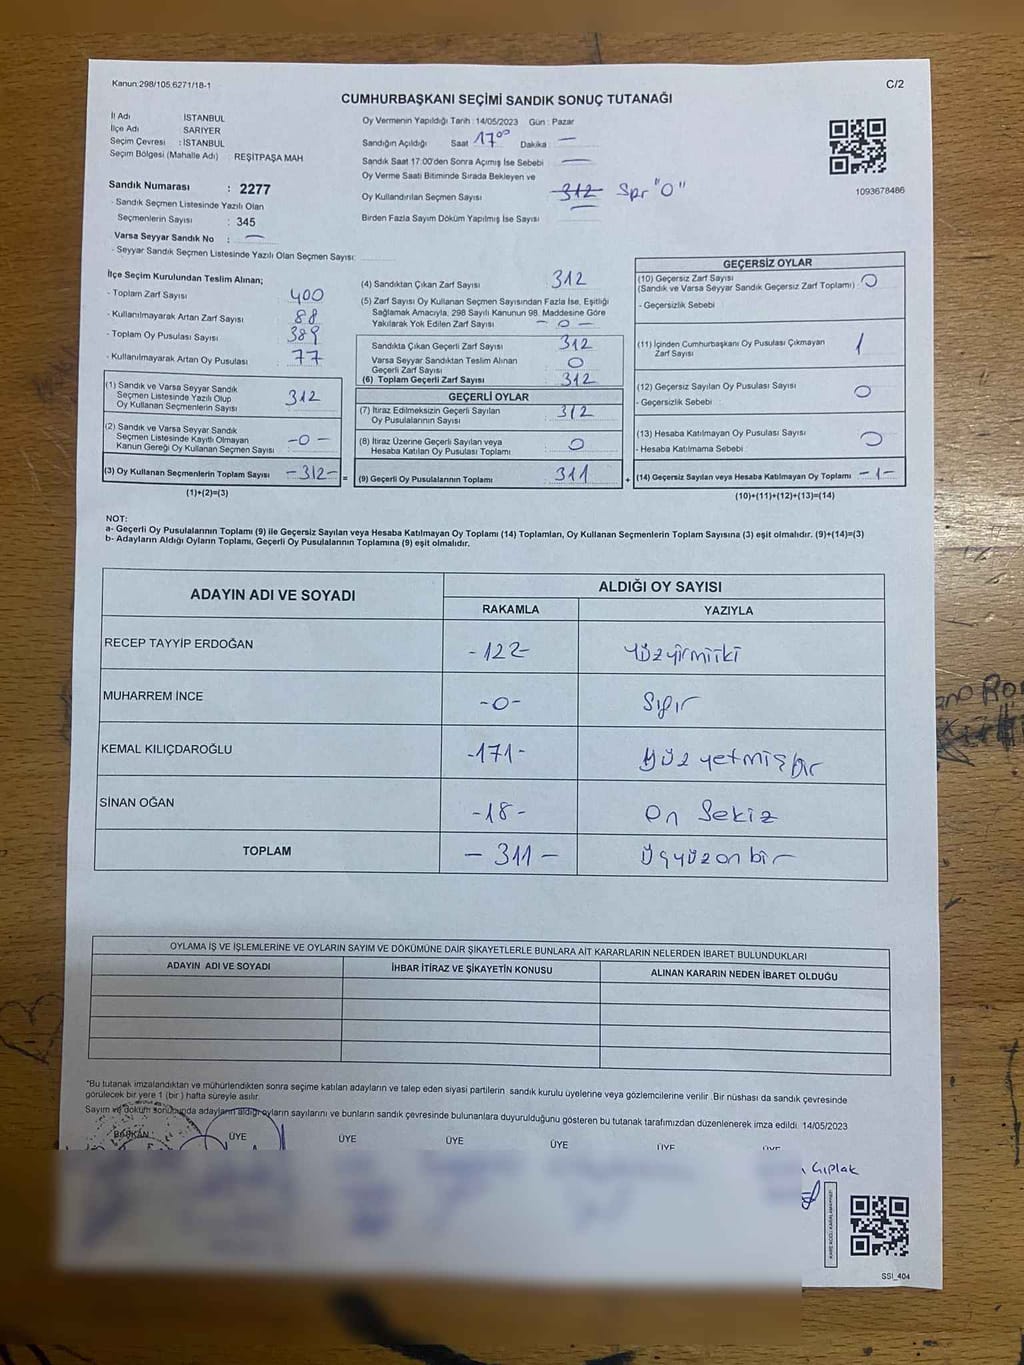 Kanun:298/105.6271/18-1
C/2
CUMHURBAŞKANI SEÇİMİ SANDIK SONUÇ TUTANAĞI
İl Adı İSTANBUL
İlçe Adı SARIYER
Seçim Çevresi : İSTANBUL
Seçim Bölgesi (Mahalle Adı) REŞİTPAŞA MAH
Sandık Numarası : 2277
- Sandık Seçmen Listesinde Yazılı Olan
Seçmenlerin Sayısı : 345
Varsa Seyyar Sandık No : —
- Seyyar Sandık Seçmen Listesinde Yazılı Olan Seçmen Sayısı:
Oy Vermenin Yapıldığı Tarih : 14/05/2023 Gün : Pazar
Sandığın Açıldığı Saat 17⁰⁰ Dakika —
Sandık Saat 17:00'den Sonra Açımış İse Sebebi —
Oy Verme Saati Bitiminde Sırada Bekleyen ve
Oy Kullandırılan Seçmen Sayısı 312 Spr "0"
Birden Fazla Sayım Döküm Yapılmış İse Sayısı
1093678486
İlçe Seçim Kurulundan Teslim Alınan;
- Toplam Zarf Sayısı 400
- Kullanılmayarak Artan Zarf Sayısı 88
- Toplam Oy Pusulası Sayısı 389
- Kullanılmayarak Artan Oy Pusulası 77
(1) Sandık ve Varsa Seyyar Sandık
Seçmen Listesinde Yazılı Olup
Oy Kullanan Seçmenlerin Sayısı 312
(2) Sandık ve Varsa Seyyar Sandık
Seçmen Listesinde Kayıtlı Olmayan
Kanun Gereği Oy Kullanan Seçmen Sayısı -0-
(3) Oy Kullanan Seçmenlerin Toplam Sayısı -312- =
(1)+(2)=(3)
(4) Sandıktan Çıkan Zarf Sayısı 312
(5) Zarf Sayısı Oy Kullanan Seçmen Sayısından Fazla İse, Eşitliği
Sağlamak Amacıyla, 298 Sayılı Kanunun 98. Maddesine Göre
Yakılarak Yok Edilen Zarf Sayısı - 0 -
Sandıkta Çıkan Geçerli Zarf Sayısı 312
Varsa Seyyar Sandıktan Teslim Alınan
Geçerli Zarf Sayısı 0
(6) Toplam Geçerli Zarf Sayısı 312
GEÇERLİ OYLAR
(7) İtiraz Edilmeksizin Geçerli Sayılan
Oy Pusulalarının Sayısı 312
(8) İtiraz Üzerine Geçerli Sayılan veya
Hesaba Katılan Oy Pusulası Toplamı 0
(9) Geçerli Oy Pusulalarının Toplamı 311 +
GEÇERSİZ OYLAR
(10) Geçersiz Zarf Sayısı
(Sandık ve Varsa Seyyar Sandık Geçersiz Zarf Toplamı) 0
- Geçersizlik Sebebi
(11) İçinden Cumhurbaşkanı Oy Pusulası Çıkmayan
Zarf Sayısı 1
(12) Geçersiz Sayılan Oy Pusulası Sayısı 0
- Geçersizlik Sebebi :
(13) Hesaba Katılmayan Oy Pusulası Sayısı 0
- Hesaba Katılmama Sebebi :
(14) Geçersiz Sayılan veya Hesaba Katılmayan Oy Toplamı -1-
(10)+(11)+(12)+(13)=(14)
NOT:
a- Geçerli Oy Pusulalarının Toplamı (9) ile Geçersiz Sayılan veya Hesaba Katılmayan Oy Toplamı (14) Toplamları, Oy Kullanan Seçmenlerin Toplam Sayısına (3) eşit olmalıdır. (9)+(14)=(3)
b- Adayların Aldığı Oyların Toplamı, Geçerli Oy Pusulalarının Toplamına (9) eşit olmalıdır.
ADAYIN ADI VE SOYADI ALDIĞI OY SAYISI
RAKAMLA YAZIYLA
RECEP TAYYİP ERDOĞAN -122- Yüzyirmiiki
MUHARREM İNCE -0- Sıfır
KEMAL KILIÇDAROĞLU -171- Yüz yetmişbir
SİNAN OĞAN -18- On Sekiz
TOPLAM - 311 - Üçyüzonbir
OYLAMA İŞ VE İŞLEMLERİNE VE OYLARIN SAYIM VE DÖKÜMÜNE DAİR ŞİKAYETLERLE BUNLARA AİT KARARLARIN NELERDEN İBARET BULUNDUKLARI
ADAYIN ADI VE SOYADI İHBAR İTİRAZ VE ŞİKAYETİN KONUSU ALINAN KARARIN NEDEN İBARET OLDUĞU
"Bu tutanak imzalandıktan ve mühürlendikten sonra seçime katılan adayların ve talep eden siyasi partilerin sandık kurulu üyelerine veya gözlemcilerine verilir. Bir nüshası da sandık çevresinde
görülecek bir yere 1 (bir) hafta süreyle asılır.
Sayım ve döküm sonucunda adayların aldığı oyların sayılarını ve bunların sandık çevresinde bulunanlara duyurulduğunu gösteren bu tutanak tarafımızdan düzenlenerek imza edildi. 14/05/2023
BAŞKAN ÜYE ÜYE ÜYE ÜYE ÜYE ÜYE
Çıplak
SSI_404